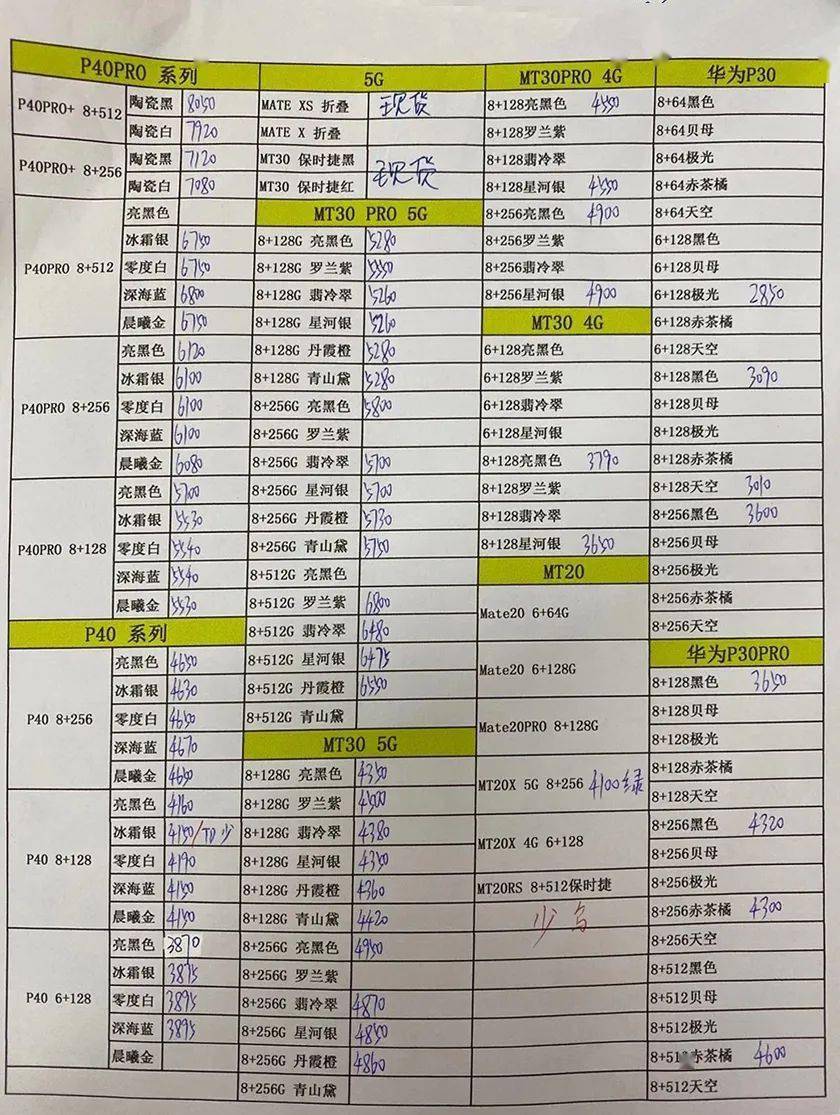 P40PRO 系列
P40PRO+ 8+512
陶瓷黑 8050
陶瓷白 7920
P40PRO+ 8+256
陶瓷黑 7120
陶瓷白 7080
P40PRO 8+512
亮黑色
冰霜银 6750
零度白 6750
深海蓝 6800
晨曦金 6750
P40PRO 8+256
亮黑色 6120
冰霜银 6100
零度白 6100
深海蓝 6100
晨曦金 6080
P40PRO 8+128
亮黑色 5700
冰霜银 5530
零度白 5540
深海蓝 5540
晨曦金 5530
P40 系列
P40 8+256
亮黑色 4650
冰霜银 4630
零度白 4650
深海蓝 4670
晨曦金 4650
P40 8+128
亮黑色 4160
冰霜银 4150/TD少
零度白 4190
深海蓝 4150
晨曦金 4150
P40 6+128
亮黑色 3870
冰霜银 3875
零度白 3895
深海蓝 3895
晨曦金
5G
MATE XS 折叠 现货
MATE X 折叠
MT30 保时捷黑 现货
MT30 保时捷红
MT30 PRO 5G
8+128G 亮黑色 5280
8+128G 罗兰紫 5550
8+128G 翡冷翠 5260
8+128G 星河银 5260
8+128G 丹霞橙 5280
8+128G 青山黛 5280
8+256G 亮黑色 5800
8+256G 罗兰紫
8+256G 翡冷翠 5700
8+256G 星河银 5700
8+256G 丹霞橙 5730
8+256G 青山黛 5750
8+512G 亮黑色
8+512G 罗兰紫 6800
8+512G 翡冷翠 6480
8+512G 星河银 6475
8+512G 丹霞橙 6550
8+512G 青山黛
MT30 5G
8+128G 亮黑色 4350
8+128G 罗兰紫 4500
8+128G 翡冷翠 4380
8+128G 星河银 4350
8+128G 丹霞橙 4360
8+128G 青山黛 4420
8+256G 亮黑色 4950
8+256G 罗兰紫
8+256G 翡冷翠 4870
8+256G 星河银 4850
8+256G 丹霞橙 4860
8+256G 青山黛
MT30PRO 4G
8+128亮黑色 4550
8+128罗兰紫
8+128翡冷翠
8+128星河银 4550
8+256亮黑色 4900
8+256罗兰紫
8+256翡冷翠
8+256星河银 4900
MT30 4G
6+128亮黑色
6+128罗兰紫
6+128翡冷翠
6+128星河银
8+128亮黑色 3790
8+128罗兰紫
8+128翡冷翠
8+128星河银 3650
MT20
Mate20 6+64G
Mate20 6+128G
Mate20PRO 8+128G
MT20X 5G 8+256 4100绿
MT20X 4G 6+128
MT20RS 8+512保时捷
少
华为P30
8+64黑色
8+64贝母
8+64极光
8+64赤茶橘
8+64天空
6+128黑色
6+128贝母
6+128极光 2850
6+128赤茶橘
6+128天空
8+128黑色 3090
8+128贝母
8+128极光
8+128赤茶橘
8+128天空 3010
8+256黑色 3600
8+256贝母
8+256极光
8+256赤茶橘
8+256天空
华为P30PRO
8+128黑色 3650
8+128贝母
8+128极光
8+128赤茶橘
8+128天空
8+256黑色 4320
8+256贝母
8+256极光
8+256赤茶橘 4300
8+256天空
8+512黑色
8+512贝母
8+512极光
8+512赤茶橘 4600
8+512天空